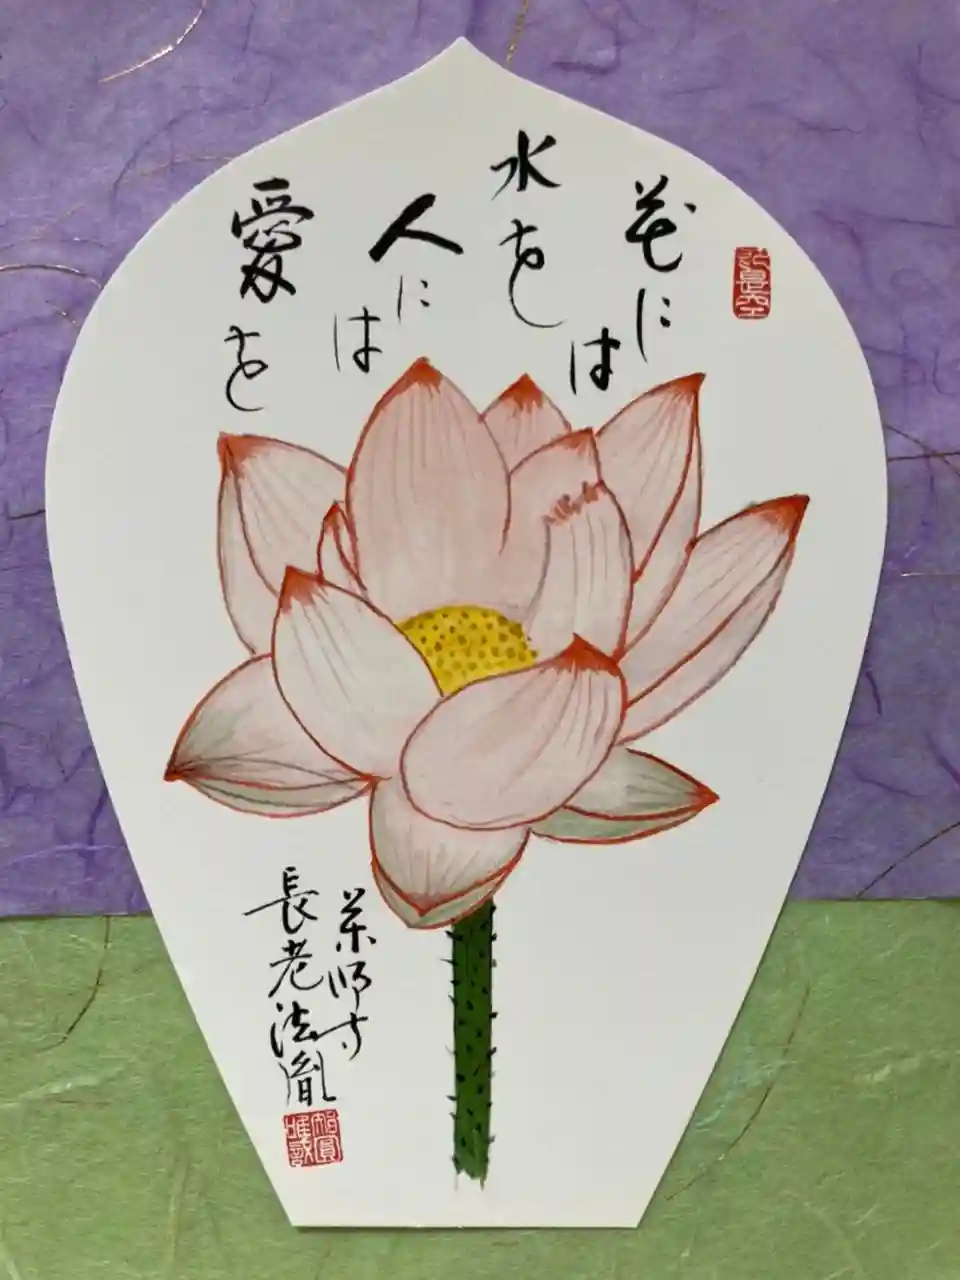 花には
水を
人には
愛を
薬師寺
長老法胤